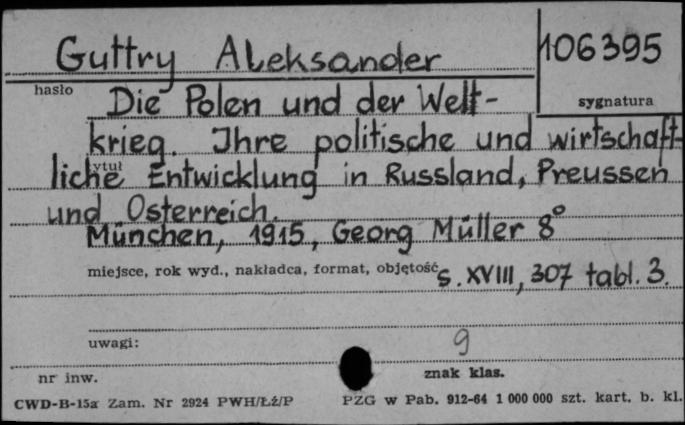 Guttry Aleksander 106395
hasło
Die Polen und der Welt- sygnatura
krieg. Ihre politische und wirtschaft-
tytuł
liche Entwicklung in Russland, Preussen
und Osterreich.
München, 1915, Georg Müller 8°
miejsce, rok wyd., nakładca, format, objętość s. XVIII, 307 tabl. 3.
uwagi: 9
nr inw. znak klas.
CWD-B-15a Zam. Nr 2924 PWH/Łź/P PZG w Pab. 912-64 1 000 000 szt. kart. b. kl.